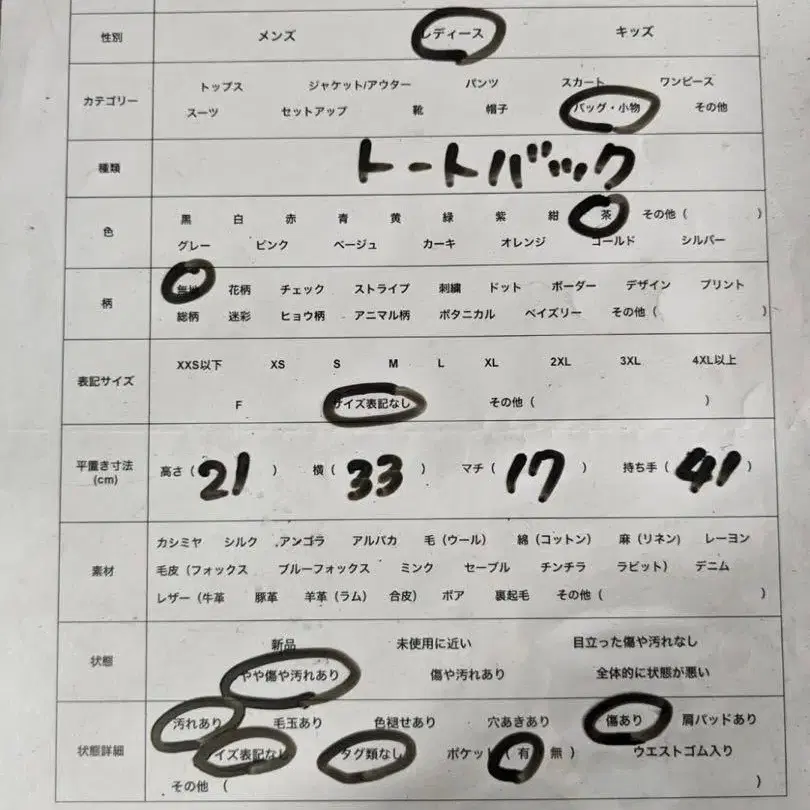 性別 メンズ レディース キッズ
トップス ジャケット/アウター パンツ スカート ワンピース
カテゴリー
スーツ セットアップ 靴 帽子 バッグ・小物 その他
種類 トートバック
黒 白 赤 青 黄 緑 紫 紺 茶 その他 ( )
色
グレー ピンク ベージュ カーキ オレンジ ゴールド シルバー
無地 花柄 チェック ストライプ 刺繍 ドット ボーダー デザイン プリント
柄
総柄 迷彩 ヒョウ柄 アニマル柄 ボタニカル ペイズリー その他 ( )
XXS以下 XS S M L XL 2XL 3XL 4XL以上
表記サイズ
F サイズ表記なし その他 ( )
平置き寸法
(cm)
高さ ( 21 ) 横 ( 33 ) マチ ( 17 ) 持ち手 ( 41 )
カシミヤ シルク アンゴラ アルパカ 毛 (ウール) 綿 (コットン) 麻 (リネン) レーヨン
素材 毛皮 (フォックス ブルーフォックス ミンク セーブル チンチラ ラビット) デニム
レザー (牛革 豚革 羊革 (ラム) 合皮) ボア 裏起毛 その他 ( )
新品 未使用に近い 目立った傷や汚れなし
状態
やや傷や汚れあり 傷や汚れあり 全体的に状態が悪い
汚れあり 毛玉あり 色褪せあり 穴あきあり 傷あり 肩パッドあり
状態詳細 サイズ表記なし タグ類なし ポケット ( 有 無 ) ウエストゴム入り
その他 ( )